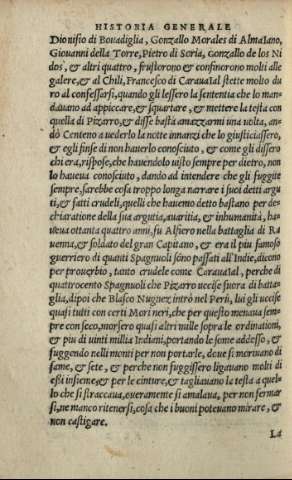 HISTORIA GENERALE
Dionisio di Bouadiglia, Gonzallo Morales di AlmaIano,
Giouanni della Torre, Pietro di Soria, Gonzallo de los Ni
dos, & altri quattro, frustorono & confinorono molti alle
galere, & al Chili, Francesco di Carauaial stette molto du
ro al confessarsi, quando gli lessero la sententia che lo man-
dauano ad appiccare, & squartare, & mettere la testa con
quella di Pizarro, & disse basta amazzarmi una uolta, an-
dò Centeno a uederlo la notte innanzi che lo giusticiassero,
& egli finse di non hauerlo conosciuto, & come gli dissero
chi era, rispose, che hauendolo uisto sempre per dietro, non
lo haueua conosciuto, dando ad intendere che gli fuggite
sempre, sarebbe cosa troppo longa narrare i suoi detti argu
ti, & fatti crudeli, quelli che hauemo detto bastano per de-
chiaratione della sua argutia, auaritia, & inhumanità, ha-
ueua ottanta quattro anni, fu Alfiero nella battaglia di Ra
uenna, & soldato del gran Capitano, & era il piu famoso
guerriero di quanti Spagnuoli sono passati all'Indie, dicono
per prouerbio, tanto crudele come Carauaial, perche di
quattrocento Spagnuoli che Pizarro uccise fuora di batta-
glia, dipoi che Blasco Nugnez intrò nel Perù, lui gli uccise
quasi tutti con certi Mori neri, che per questo menaua sem-
pre con seco, morsero quasi altri mille sopra le ordinationi,
& piu di uinti millia Indiani, portando le some addosso, &
fuggendo nelli monti per non portarle, doue si moruano di
fame, & sete, & perche non fuggissero ligauano molti di
essi insieme, & per le cinture, & tagliauano la testa a quel-
lo che si straccaua, eueramente si amalaua, per non fermar
si, ne manco ritenersi, cosa che i buoni poteuano mirare, &
non castigare.
La